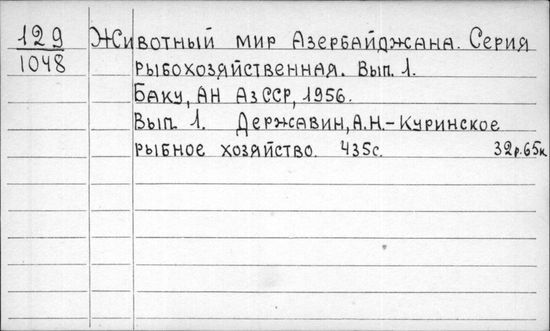 129 Животный мир Азербайджана. Серия
1048 рыбохозяйственная. Вып. 1.
Баку, АН АзССР, 1956.
Вып. 1. Державин, А.Н.-Куринское
рыбное хозяйство. 435с. 32р.65к